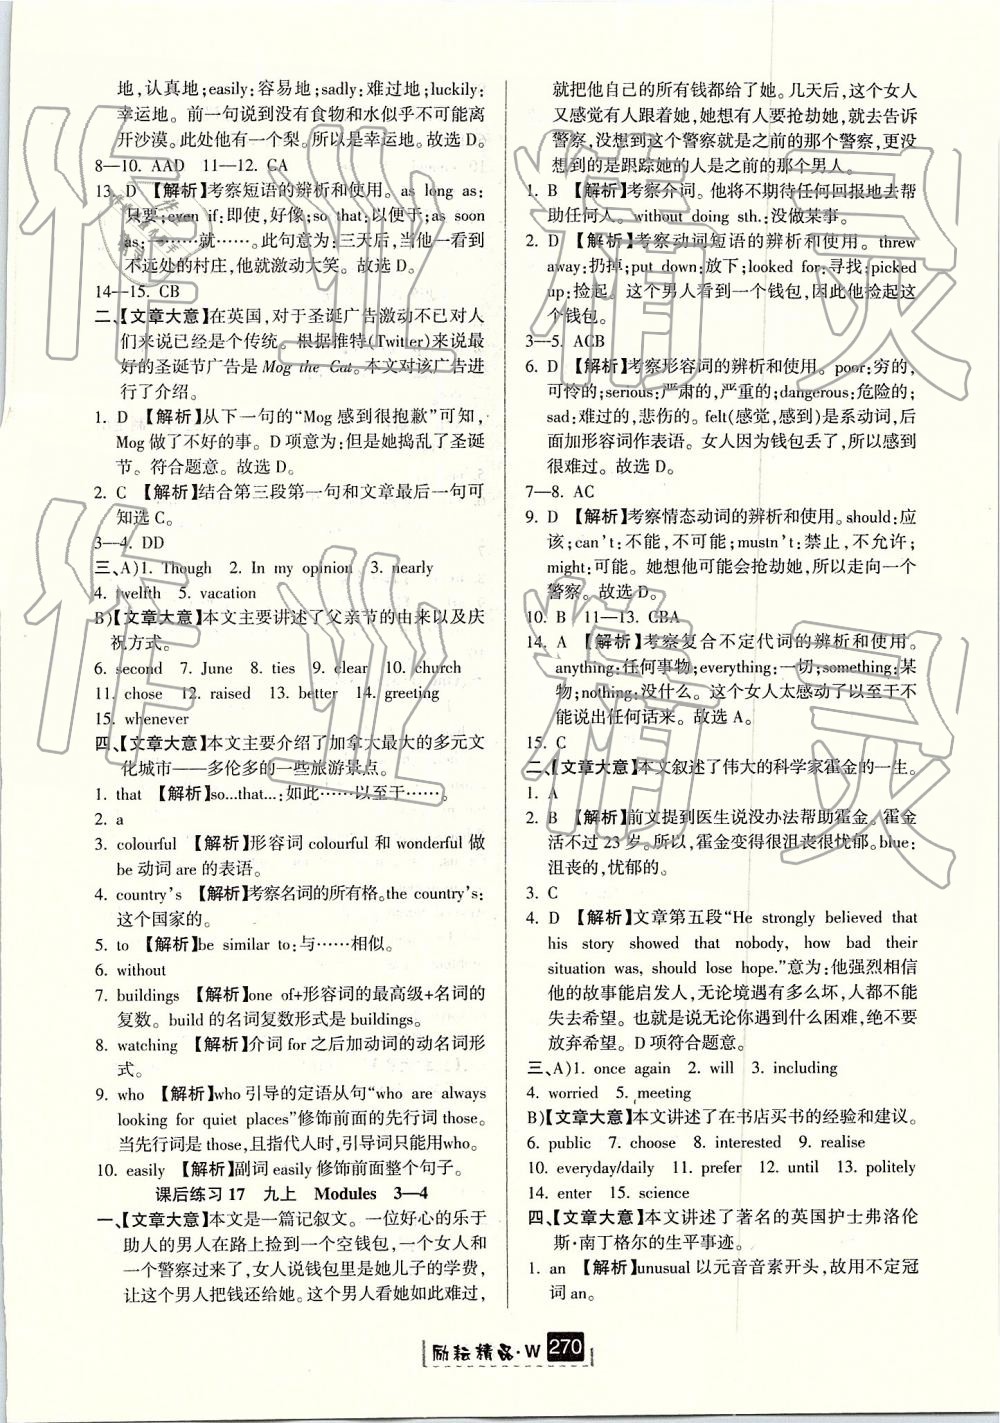 地,认真地;easily:容易地;sadly:难过地;luckily:
幸运地。前一句说到没有食物和水似乎不可能离
开沙漠。此处他有一个梨。所以是幸运地。故选 D。
8—10. AAD 11—12. CA
13. D 【解析】考察短语的辨析和使用。as long as:
只要;even if:即使,好像;so that:以便于;as soon
as:一……就……。此句意为:三天后,当他一看到
不远处的村庄,他就激动大笑。故选 D。
14—15. CB
二、【文章大意】在英国,对于圣诞广告激动不已对人
们来说已经是个传统。根据推特(Twitter)来说最
好的圣诞节广告是 Mog the Cat。本文对该广告进
行了介绍。
1. D 【解析】从下一句的“Mog 感到很抱歉”可知,
Mog 做了不好的事。D 项意为:但是她捣乱了圣诞
节。符合题意。故选 D。
2. C 【解析】结合第三段第一句和文章最后一句可
知选 C。
3—4. DD
三、A)1. Though 2. In my opinion 3. nearly
4. twelfth 5. vacation
B)【文章大意】本文主要讲述了父亲节的由来以及庆
祝方式。
6. second 7. June 8. ties 9. clear 10. church
11. chose 12. raised 13. better 14. greeting
15. whenever
四、【文章大意】本文主要介绍了加拿大最大的多元文
化城市——多伦多的一些旅游景点。
1. that 【解析】so...that...:如此……以至于……。
2. a
3. colourful 【解析】形容词 colourful 和 wonderful 做
be 动词 are 的表语。
4. country's 【解析】考察名词的所有格。the country's:
这个国家的。
5. to 【解析】be similar to:与……相似。
6. without
7. buildings 【解析】one of+形容词的最高级+名词的
复数。build 的名词复数形式是 buildings。
8. watching 【解析】介词 for 之后加动词的动名词形
式。
9. who 【解析】who 引导的定语从句“who are always
looking for quiet places”修饰前面的先行词 those。
当先行词是 those,且指代人时,引导词只能用who。
10. easily 【解析】副词 easily 修饰前面整个句子。
课后练习 17 九上 Modules 3—4
一、【文章大意】本文是一篇记叙文。一位好心的乐于
助人的男人在路上捡到一个空钱包,一个女人和
一个警察过来了,女人说钱包里是她儿子的学费,
让这个男人把钱还给她。这个男人看她如此难过,
就把他自己的所有钱都给了她。几天后,这个女人
又感觉有人跟着她,她想有人要抢劫她,就去告诉
警察,没想到这个警察就是之前的那个警察,更没
想到的是跟踪她的人是之前的那个男人。
1. B 【解析】考察介词。他将不期待任何回报地去帮
助任何人。without doing sth.:没做某事。
2. D 【解析】考察动词短语的辨析和使用。threw
away:扔掉;put down:放下;looked for:寻找;picked
up:捡起。这个男人看到一个钱包,因此他捡起这
个钱包。
3—5. ACB
6. D 【解析】考察形容词的辨析和使用。poor:穷的,
可怜的;serious:严肃的,严重的;dangerous:危险的;
sad:难过的,悲伤的。felt(感觉,感到)是系动词,后
面加形容词作表语。女人因为钱包丢了,所以感到
很难过。故选 D。
7—8. AC
9. D 【解析】考察情态动词的辨析和使用。should:应
该;can't:不能,不可能;mustn't:禁止,不允许;
might:可能。她想他可能会抢劫她,所以走向一个
警察。故选 D。
10. B 11—13. CBA
14. A 【解析】考察复合不定代词的辨析和使用。
anything:任何事物;everything:一切;something:某
物;nothing:没什么。这个女人太感动了以至于不
能说出任何话来。故选 A。
15. C
二、【文章大意】本文叙述了伟大的科学家霍金的一生。
1. A
2. B 【解析】前文提到医生说没办法帮助霍金。霍金
活不过 23 岁。所以,霍金变得很沮丧很忧郁。blue:
沮丧的,忧郁的。
3. C
4. D 【解析】文章第五段“He strongly believed that
his story showed that nobody, how bad their
situation was, should lose hope.”意为:他强烈相信
他的故事能启发人,无论境遇有多么坏,人都不能
失去希望。也就是说无论你遇到什么困难,绝不要
放弃希望。D 项符合题意。
三、A)1. once again 2. will 3. including
4. worried 5. meeting
B)【文章大意】本文讲述了在书店买书的经验和建议。
6. public 7. choose 8. interested 9. realise
10. everyday/daily 11. prefer 12. until 13. politely
14. enter 15. science
四、【文章大意】本文讲述了著名的英国护士弗洛伦
斯·南丁格尔的生平事迹。
1. an 【解析】unusual 以元音音素开头,故用不定冠
词 an。
励耘精品·W 270
作业精灵
作业精灵